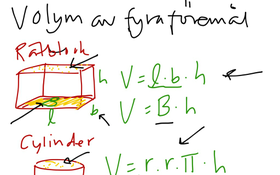 Volym av fyra föremål
Rätblock
h V = l·b·h
B b V = B·h
l
Cylinder
V = r·r·π·h